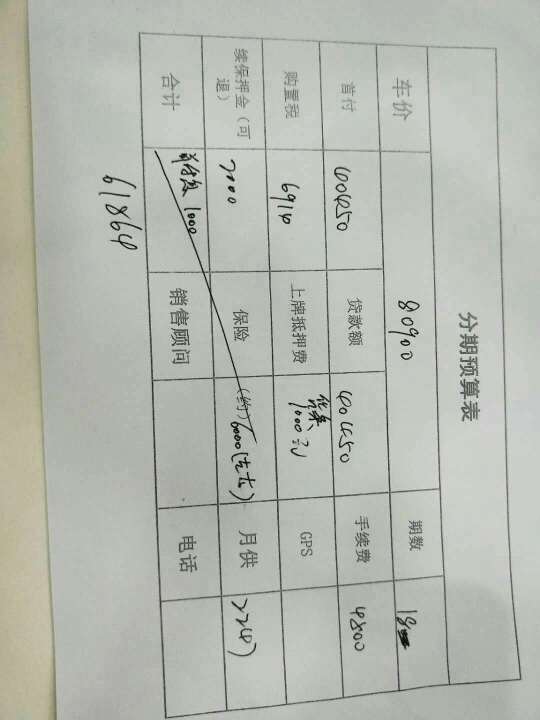 分期预算表
车价 80900 期数 18
首付 40450 贷款额 40450 手续费 4800
购置税 6914 上牌抵押费 1000 GPS
续保押金（可退） 2000 保险 (约) 6000(左右) 月供 2247
合计 1000 销售顾问 电话
61864